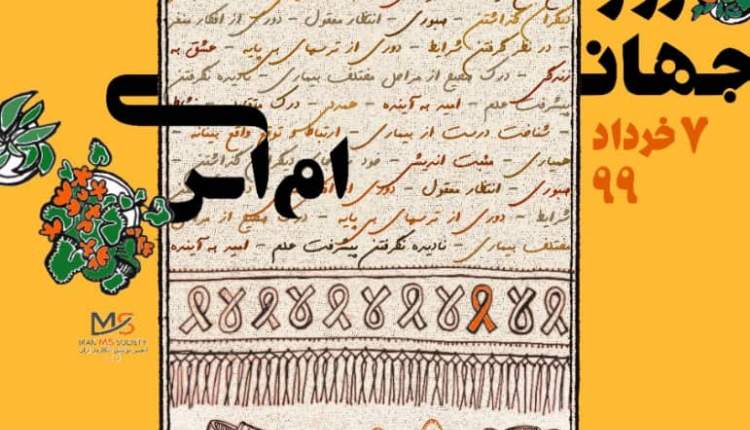 روز
جهانی
ام‌اس
۷ خرداد
۹۹
دیگران گذاشتن - صبوری - انتظار معقول - دوری از افکار منفی
- در نظر گرفتن شرایط - دوری از ترسهای بی پایه - عشق به
زندگی - درک صحیح از مراحل مختلف بیماری - نادیده نگرفتن
پیشرفت علم - امید به آینده - همدلی - درک متقابل -
- شناخت درست از بیماری - ارتباط و توقع واقع بینانه -
همیاری - مثبت اندیشی - خود دیگران گذاشتن -
صبوری - انتظار معقول - دوری از
شرایط - دوری از ترسهای بی پایه - درک صحیح از مراحل
مختلف بیماری - نادیده نگرفتن پیشرفت علم - امید به آینده
MS
IRAN MS SOCIETY